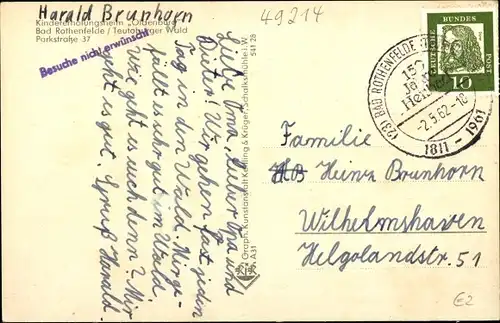 Harald Brunhorn
Kindererholungsheim "Oldenburg"
Bad Rothenfelde / Teutoburger Wald
Parkstraße 37
Besuche nicht erwünscht
49214
Liebe Oma, lieber Opa und
Dieter! Wir gehen fast jeden
Tag in den Wald. Mir ge-
fällt es sehr gut im Wald.
Wie geht es euch denn? Mir
geht es gut. Gruß Harald.
541 28
Graph. Kunstanstalt Kettling & Krüger, Schalksmühle i. W.
A 31
DEUTSCHE BUNDESPOST
10
(23) BAD ROTHENFELDE
150
Jahre
Heil
-2.5.62-18
1811 - 1961
Familie
Heinz Brunhorn
Wilhelmshaven
Helgolandstr. 51
€2